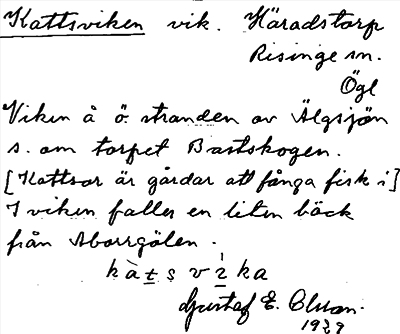 Kattsviken vik. Häradstorp
Risinge sn.
Ögl
Viken å ö. stranden av Älgsjön
s. om torpet Bastskogen.
[Kattsor är gårdar att fånga fisk i]
I viken faller en liten bäck
från Aborrgölen.
Gustaf E.
1929